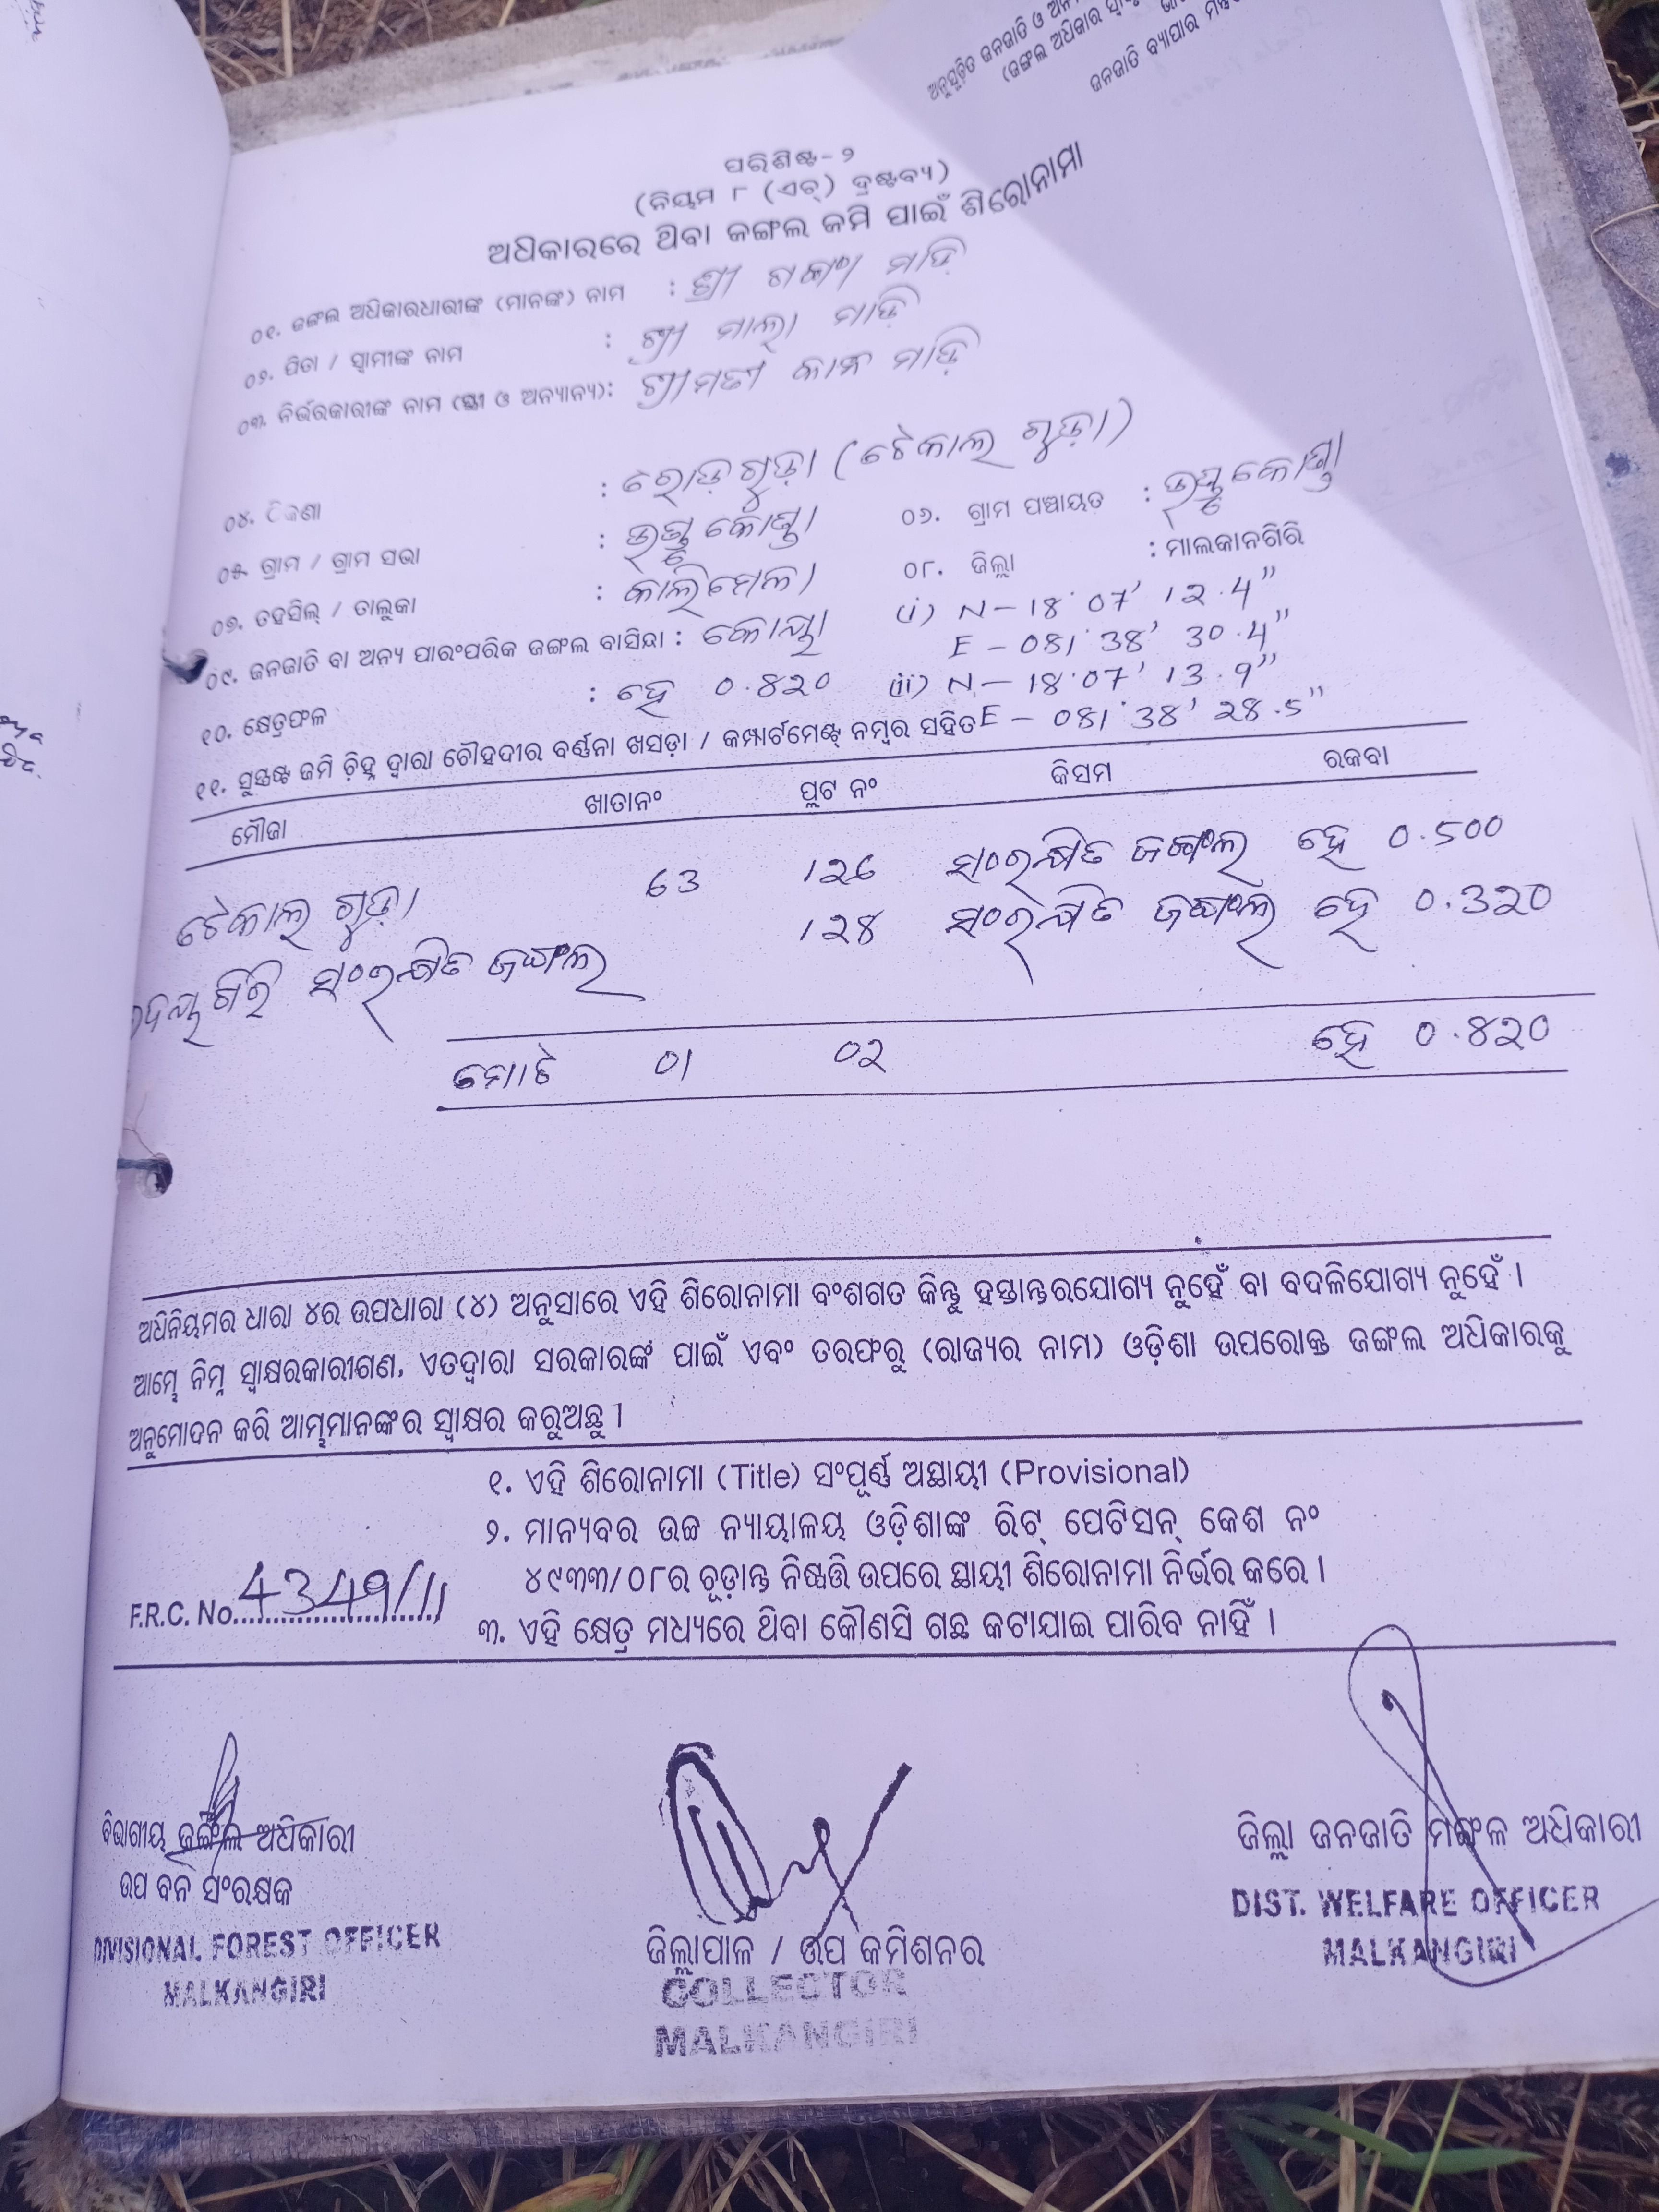 ଅନୁସୂଚିତ ଜନଜାତି ଓ
(ଜଙ୍ଗଲ ଅଧିକାର
ଜନଜାତି ବ୍ୟାପାର
ପରିଶିଷ୍ଟ-୨
(ନିୟମ ୮ (ଏଚ୍) ଦ୍ରଷ୍ଟବ୍ୟ)
ଅଧିକାରରେ ଥିବା ଜଙ୍ଗଲ ଜମି ପାଇଁ ଶିରୋନାମା
୦୧. ଜଙ୍ଗଲ ଅଧିକାରଧାରୀଙ୍କ (ମାନଙ୍କ) ନାମ : ଶ୍ରୀ ମାଡ଼ି
୦୨. ପିତା / ସ୍ୱାମୀଙ୍କ ନାମ : ଶ୍ରୀ ମାଲା ମାଡ଼ି
୦୩. ନିର୍ଭରକାରୀଙ୍କ ନାମ (ସ୍ତ୍ରୀ ଓ ଅନ୍ୟାନ୍ୟ): ଶ୍ରୀମତୀ ମାଡ଼ି
୦୪. ଠିକଣା : ରୋଡ଼ଗୁଡ଼ା (ଟେକାଲ ଗୁଡ଼ା)
୦୫. ଗ୍ରାମ / ଗ୍ରାମ ସଭା : ୦୬. ଗ୍ରାମ ପଞ୍ଚାୟତ :
୦୭. ତହସିଲ୍ / ତାଲୁକା : କାଲିମେଳା ୦୮. ଜିଲ୍ଲା : ମାଲକାନଗିରି
୦୯. ଜନଜାତି ବା ଅନ୍ୟ ପାରଂପରିକ ଜଙ୍ଗଲ ବାସିନ୍ଦା : କୋୟା (i) N - 18° 07' 12.4"
E - 081° 38' 30.4"
୧୦. କ୍ଷେତ୍ରଫଳ : ହେ 0.820 (ii) N - 18° 07' 13.9"
E - 081° 38' 28.5"
୧୧. ସୁସ୍ପଷ୍ଟ ଜମି ଚିହ୍ନ ଦ୍ୱାରା ଚୌହଦୀର ବର୍ଣ୍ଣନା ଖସଡ଼ା / କମ୍ପାର୍ଟମେଣ୍ଟ୍ ନମ୍ବର ସହିତ
ମୌଜା ଖାତାନଂ ପ୍ଲଟ ନଂ କିସମ ରକବା
ଟେକାଲ ଗୁଡ଼ା 63 126 ସଂରକ୍ଷିତ ଜଙ୍ଗଲ ହେ 0.500
ସଂରକ୍ଷିତ ଜଙ୍ଗଲ 128 ସଂରକ୍ଷିତ ଜଙ୍ଗଲ ହେ 0.320
ମୋଟ 01 02 ହେ 0.820
ଅଧିନିୟମର ଧାରା ୪ର ଉପଧାରା (୪) ଅନୁସାରେ ଏହି ଶିରୋନାମା ବଂଶଗତ କିନ୍ତୁ ହସ୍ତାନ୍ତରଯୋଗ୍ୟ ନୁହେଁ ବା ବଦଳିଯୋଗ୍ୟ ନୁହେଁ ।
ଆମ୍ଭେ ନିମ୍ନ ସ୍ୱାକ୍ଷରକାରୀଗଣ, ଏତଦ୍ୱାରା ସରକାରଙ୍କ ପାଇଁ ଏବଂ ତରଫରୁ (ରାଜ୍ୟର ନାମ) ଓଡ଼ିଶା ଉପରୋକ୍ତ ଜଙ୍ଗଲ ଅଧିକାରକୁ
ଅନୁମୋଦନ କରି ଆମ୍ଭମାନଙ୍କର ସ୍ୱାକ୍ଷର କରୁଅଛୁ ।
୧. ଏହି ଶିରୋନାମା (Title) ସଂପୂର୍ଣ୍ଣ ଅସ୍ଥାୟୀ (Provisional)
୨. ମାନ୍ୟବର ଉଚ୍ଚ ନ୍ୟାୟାଳୟ ଓଡ଼ିଶାଙ୍କ ରିଟ୍ ପେଟିସନ୍ କେଶ ନଂ
୪୯୩୩/୦୮ର ଚୂଡ଼ାନ୍ତ ନିଷ୍ପତ୍ତି ଉପରେ ସ୍ଥାୟୀ ଶିରୋନାମା ନିର୍ଭର କରେ ।
F.R.C. No. 4349/11
୩. ଏହି କ୍ଷେତ୍ର ମଧ୍ୟରେ ଥିବା କୌଣସି ଗଛ କଟାଯାଇ ପାରିବ ନାହିଁ ।
ବିଭାଗୀୟ ଜଙ୍ଗଲ ଅଧିକାରୀ
ଉପ ବନ ସଂରକ୍ଷକ
DIVISIONAL FOREST OFFICER
MALKANGIRI
ଜିଲ୍ଲାପାଳ / ଉପ କମିଶନର
COLLECTOR
MALKANGIRI
ଜିଲ୍ଲା ଜନଜାତି ମଙ୍ଗଳ ଅଧିକାରୀ
DIST. WELFARE OFFICER
MALKANGIRI